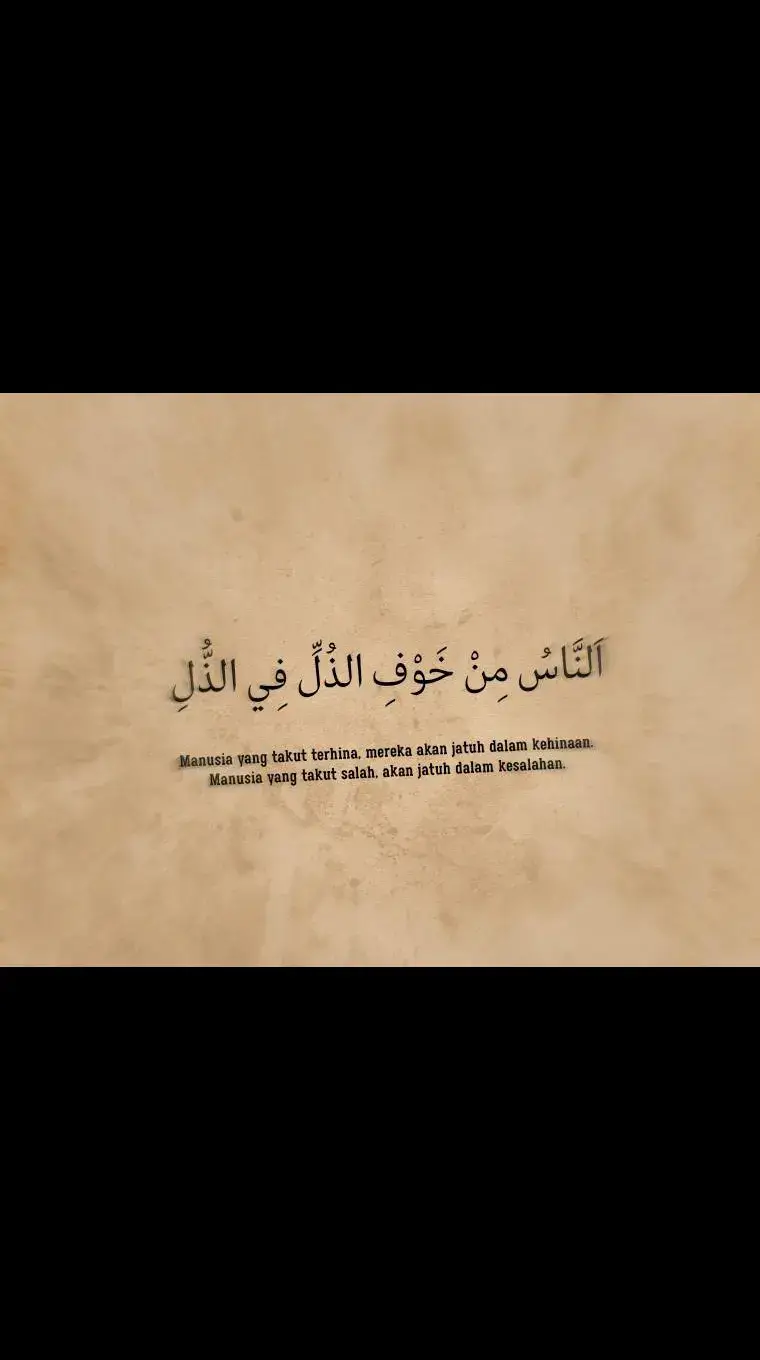 اَلنَّاسُ مِنْ خَوْفِ الذُلِّ فِي الذُّلِ
Manusia yang takut terhina, mereka akan jatuh dalam kehinaan.
Manusia yang takut salah, akan jatuh dalam kesalahan.